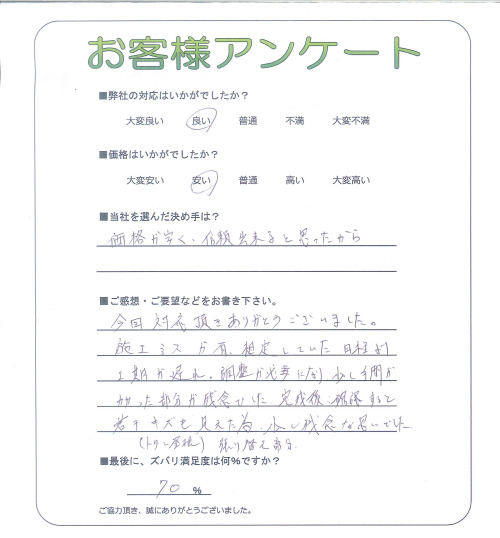 お客様アンケート
■弊社の対応はいかがでしたか？
大変良い 良い 普通 不満 大変不満
■価格はいかがでしたか？
大変安い 安い 普通 高い 大変高い
■当社を選んだ決め手は？
価格が安く、信頼出来ると思ったから
■ご感想・ご要望などをお書き下さい。
今回対応頂きありがとうございました。
施工ミスが有、想定していた日程より
工期が遅れ、調整が必要になり、少し手間が
かかった部分が残念でした。完成後、確認すると
若干キズも見えた為、少し残念な思いでした
(トタン屋根) 張り替え部分
■最後に、ズバリ満足度は何%ですか？
70 %
ご協力頂き、誠にありがとうございました。